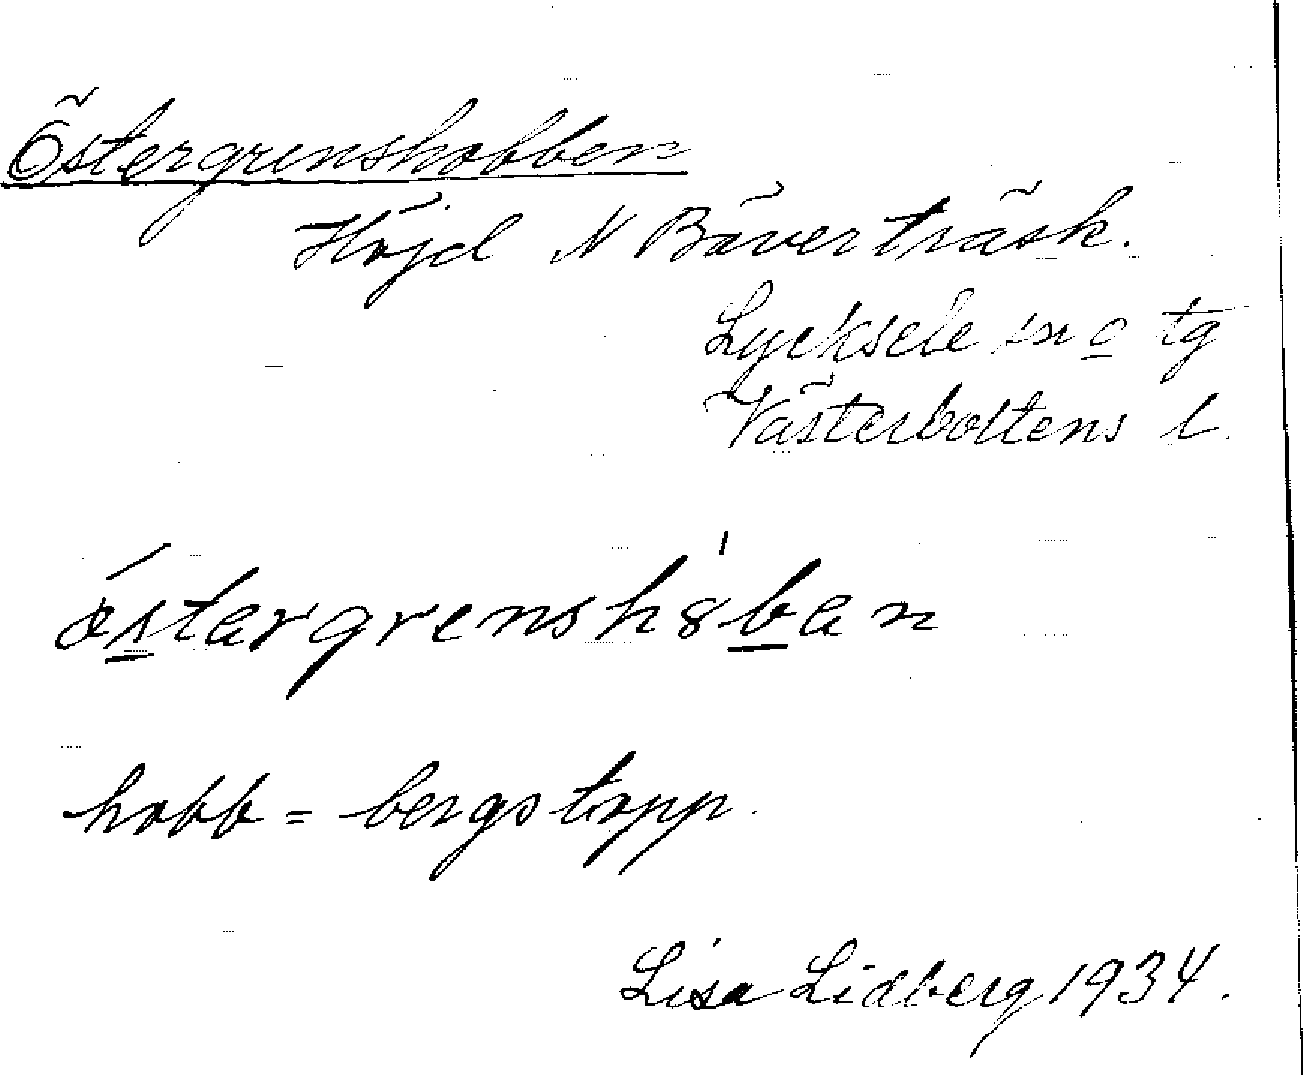 Östergrenshobben
Höjd N Bäverträsk.
Lycksele sn o tg
Västerbottens l.
östargrenshȣban
hobb = bergstopp.
Lisa Lidberg 1934.